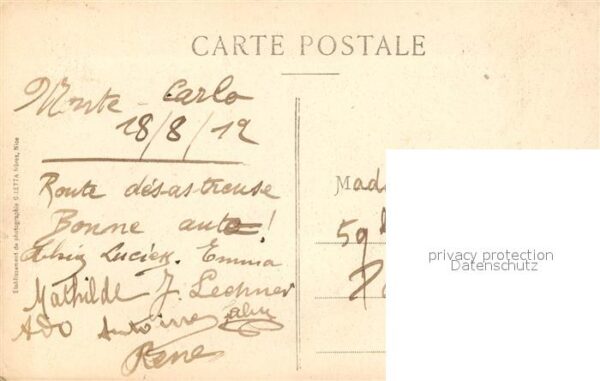 CARTE POSTALE
Monte-Carlo
18/8/12
Route désastreuse
Bonne auto!
Lucien. Emma
Mathilde J. Lechner
Ado Antoine
René
Etablissement de photographie GILETTA frères, Nice
Mad
59
privacy protection
Datenschutz